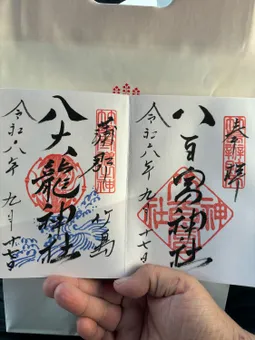 奉拝
八百富神社
令和六年 九月十七日
蒲郡 竹島
八大龍神社
令和六年 九月十七日